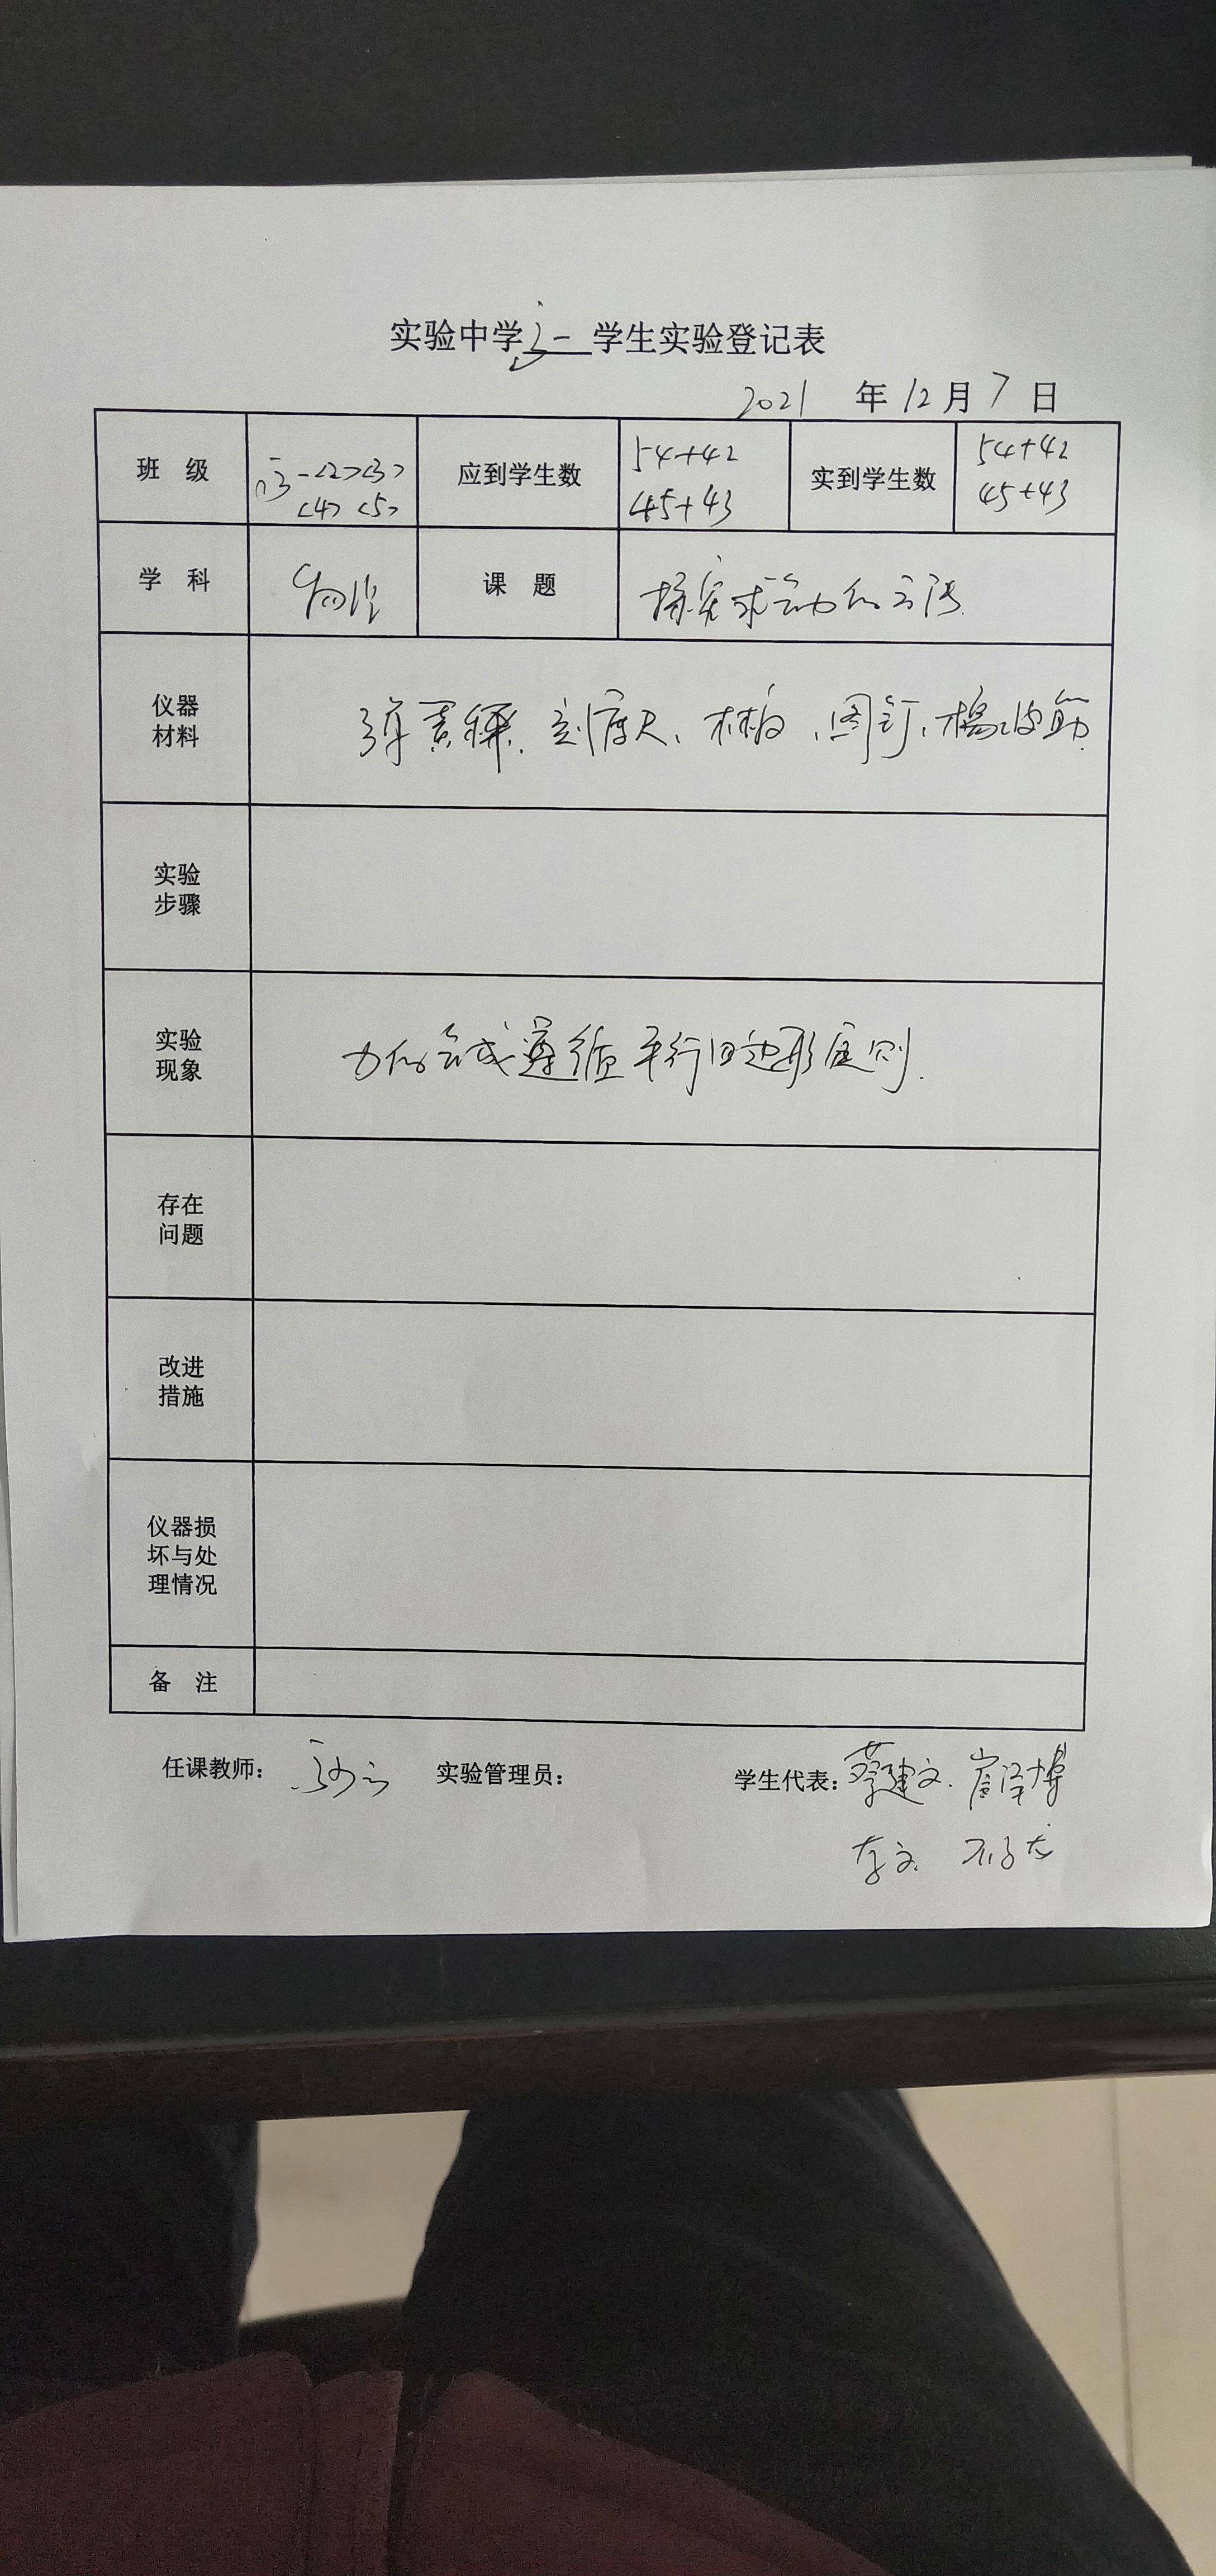 实验中学高一学生实验登记表
2021 年 12 月 7 日
班 级 高一<2><3> 应到学生数 54+42 实到学生数 54+42
<4> <5> 45+43 45+43
学 科 物理 课 题 探究求合力的方法
仪器
材料
弹簧秤、刻度尺、木板、图钉、橡皮筋.
实验
步骤
实验
现象
力的合成遵循平行四边形定则.
存在
问题
改进
措施
仪器损
坏与处
理情况
备 注
任课教师: 实验管理员: 学生代表: 蔡建文. 崔泽博
李文